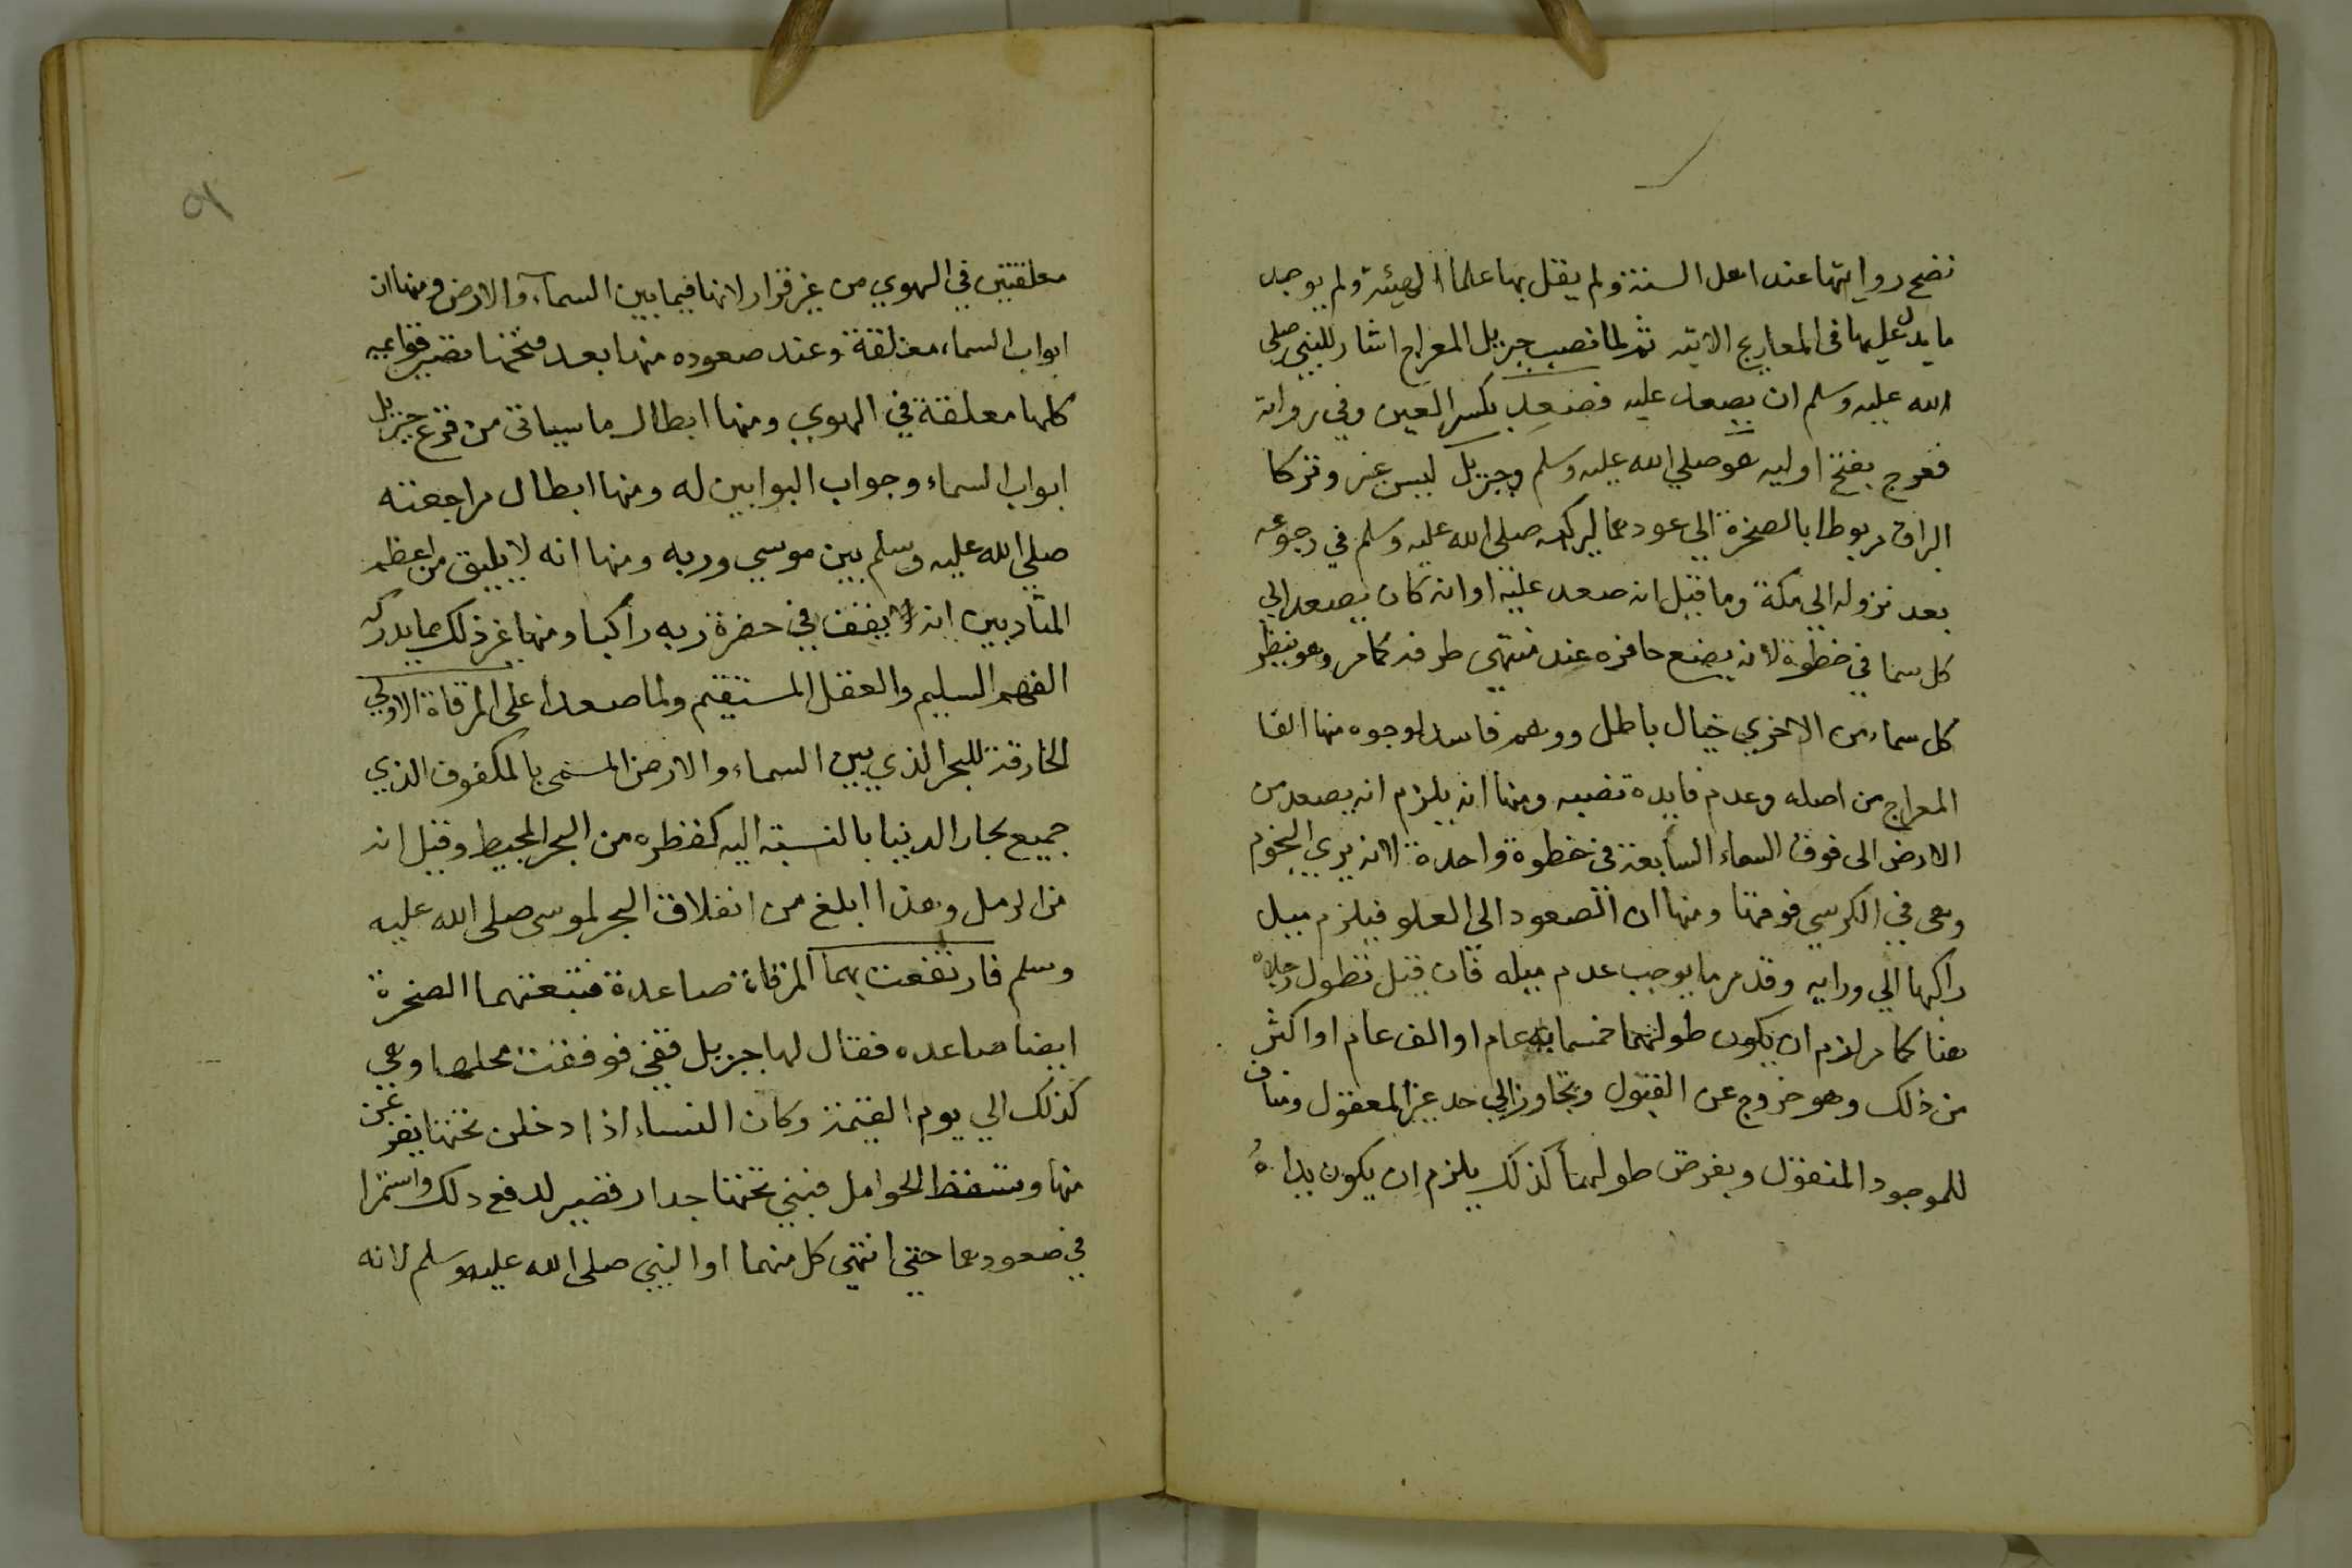 تصح روايتها عند اهل السنة ولم يقل بها علما الهيئة ولم يوجد
ما يدل عليها في المعاريج الاتية ثم لما نصب جبريل المعراج اشار للنبي صلى
الله عليه وسلم ان يصعد عليه فصعد بكسر العين وفي رواية
فعرج بفتح اوليه هو صلي الله عليه وسلم وجبريل ليس غير وتركا
البراق مربوطا بالصخرة الي عودهما ليركبه صلى الله عليه وسلم في رجوعه
بعد نزوله الي مكة وما قيل انه صعد عليه او انه كان يصعد الي
كل سما في خطوة لانه يضع حافره عند منتهى طرفه كما مر وهو ينظر
كل سماء من الاخري خيال باطل ووهم فاسد لوجوه منها الغا
المعراج من اصله وعدم فايدة نصبه ومنها انه يلزم انه يصعد من
الارض الى فوق السماء السابعة في خطوة واحدة لانه يري النجوم
وهى في الكرسي فوقها ومنها ان الصعود الي العلو فيلزم ميل
راكبها الي ورايه وقد مر ما يوجب عدم ميله فان قيل تطول رجلاه
هنا كما مر لزم ان يكون طولهما خمسماية عام او الف عام او اكثر
من ذلك وهو خروج عن القبول وتجاوز الي حد غير المعقول ومناف
للموجود المنقول وبفرض طولهما كذلك يلزم ان يكون يداهُ
٩
معلقتين في الهوي من غير قرار لانها فيما بين السمآء والارض ومنها ان
ابواب السماء مغلقة وعند صعوده منها بعد فتحها تصير قوائمه
كلها معلقة في الهوي ومنها ابطال ما سياتى من قرع جبريل
ابواب السماء وجواب البوابين له ومنها ابطال مراجعته
صلي الله عليه وسلم بين موسي وربه ومنها انه لا يليق من اعظم
المتادبين انه يقف في حضرة ربه راكبا ومنها غير ذلك مما يدركه
الفهم السليم والعقل المستقيم ولما صعدا على المرقاة الاولي
الخارقة للبحر الذي بين السماء والارض المسمى بالمكفوف الذي
جميع بحار الدنيا بالنسبة اليه كقطره من البحر المحيط وقيل انه
من الرمل وهذا ابلغ من انفلاق البحر لموسى صلى الله عليه
وسلم فارتفعت بهما المرقاة صاعدة فتبعتهما الصخرة
ايضا صاعده فقال لها جبريل قفي فوقفت محلها وهي
كذلك الي يوم القيمة وكان النساء اذا دخلن تحتها يفزعن
منها وتسقط الحوامل فبني تحتها جدار قصير لدفع ذلك واستمرا
في صعودهما حتي انتهى كل منهما او النبي صلى الله عليه وسلم لانه